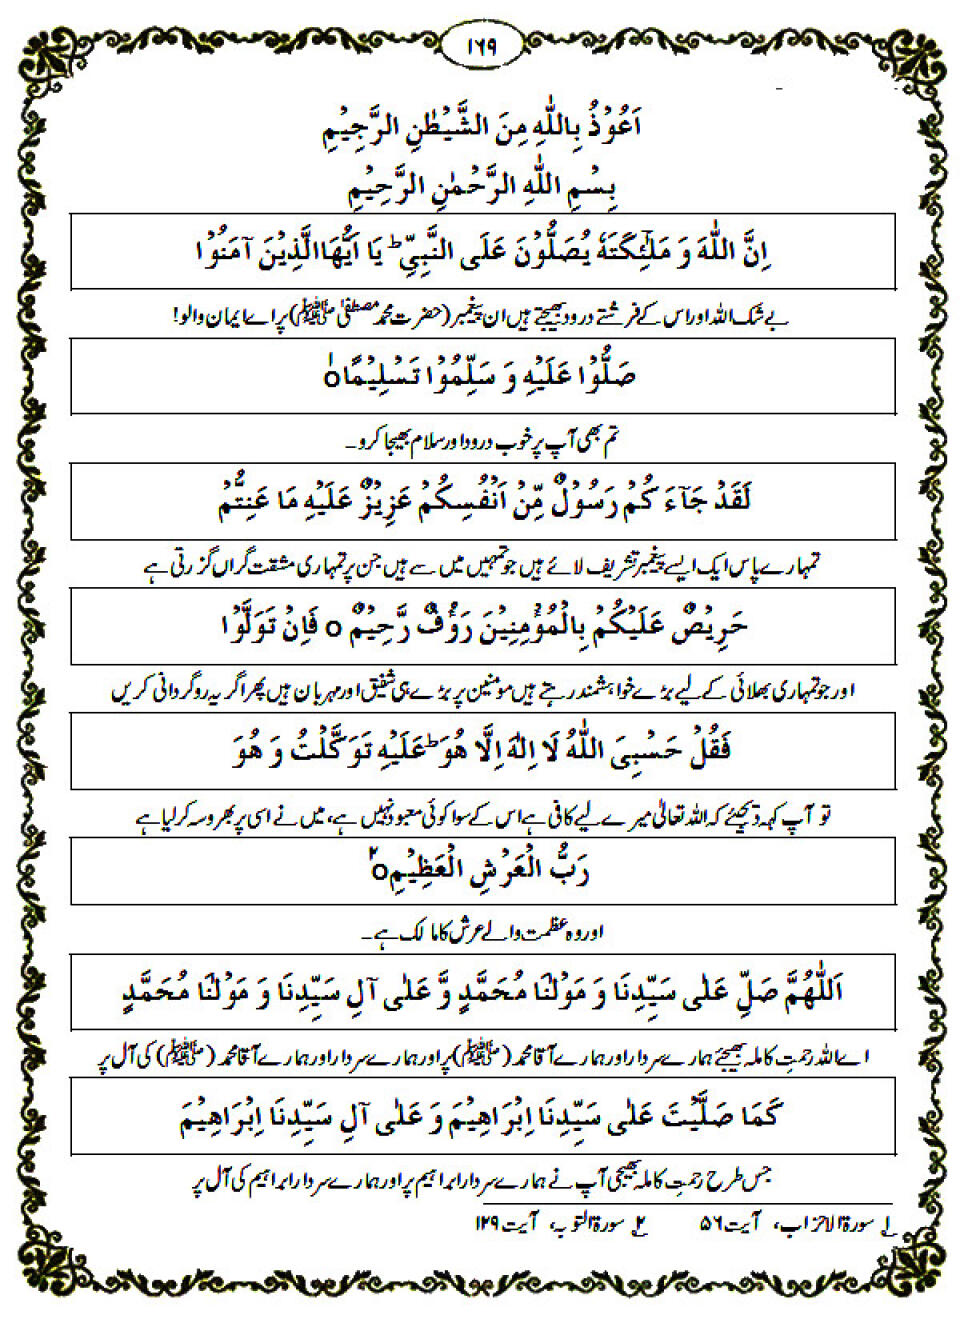 ۱۶۹
اَعُوْذُ بِاللّٰهِ مِنَ الشَّيْطٰنِ الرَّجِيْمِ
بِسْمِ اللّٰهِ الرَّحْمٰنِ الرَّحِيْمِ
اِنَّ اللّٰهَ وَ مَلٰٓئِكَتَهٗ يُصَلُّوْنَ عَلَى النَّبِيِّ ؕ يَا اَيُّهَاالَّذِيْنَ آمَنُوْا
بے شک اللہ اور اس کے فرشتے درود بھیجتے ہیں ان پیغمبر (حضرت محمد مصطفیٰ ﷺ) پر اے ایمان والو!
صَلُّوْا عَلَيْهِ وَ سَلِّمُوْا تَسْلِيْمًا ۱ؕ
تم بھی آپ پر خوب درود اور سلام بھیجا کرو۔
لَقَدْ جَآءَ كُمْ رَسُوْلٌ مِّنْ اَنْفُسِكُمْ عَزِيْزٌ عَلَيْهِ مَا عَنِتُّمْ
تمہارے پاس ایک ایسے پیغمبر تشریف لائے ہیں جو تمہیں میں سے ہیں جن پر تمہاری مشقت گراں گزرتی ہے
حَرِيْصٌ عَلَيْكُمْ بِالْمُؤْمِنِيْنَ رَؤُفٌ رَّحِيْمٌ o فَاِنْ تَوَلَّوْا
اور جو تمہاری بھلائی کے لیے بڑے خواہشمند رہتے ہیں مومنین پر بڑے ہی شفیق اور مہربان ہیں پھر اگر یہ روگردانی کریں
فَقُلْ حَسْبِيَ اللّٰهُ لَا اِلٰهَ اِلَّا هُوَ ؕ عَلَيْهِ تَوَكَّلْتُ وَ هُوَ
تو آپ کہہ دیجئے کہ اللہ تعالیٰ میرے لیے کافی ہے اس کے سوا کوئی معبود نہیں ہے، میں نے اسی پر بھروسہ کر لیا ہے
رَبُّ الْعَرْشِ الْعَظِيْمِ o۲
اور وہ عظمت والے عرش کا مالک ہے۔
اَللّٰهُمَّ صَلِّ عَلٰى سَيِّدِنَا وَ مَوْلٰنَا مُحَمَّدٍ وَّ عَلٰى آلِ سَيِّدِنَا وَ مَوْلٰنَا مُحَمَّدٍ
اے اللہ رحمتِ کاملہ بھیجئے ہمارے سردار اور ہمارے آقا محمد (ﷺ) پر اور ہمارے سردار اور ہمارے آقا محمد (ﷺ) کی آل پر
كَمَا صَلَّيْتَ عَلٰى سَيِّدِنَا اِبْرَاهِيْمَ وَ عَلٰى آلِ سَيِّدِنَا اِبْرَاهِيْمَ
جس طرح رحمتِ کاملہ بھیجی آپ نے ہمارے سردار ابراہیم پر اور ہمارے سردار ابراہیم کی آل پر
۱؎ سورۃ الاحزاب، آیت ۵۶ ۲؎ سورۃ التوبہ، آیت ۱۲۹